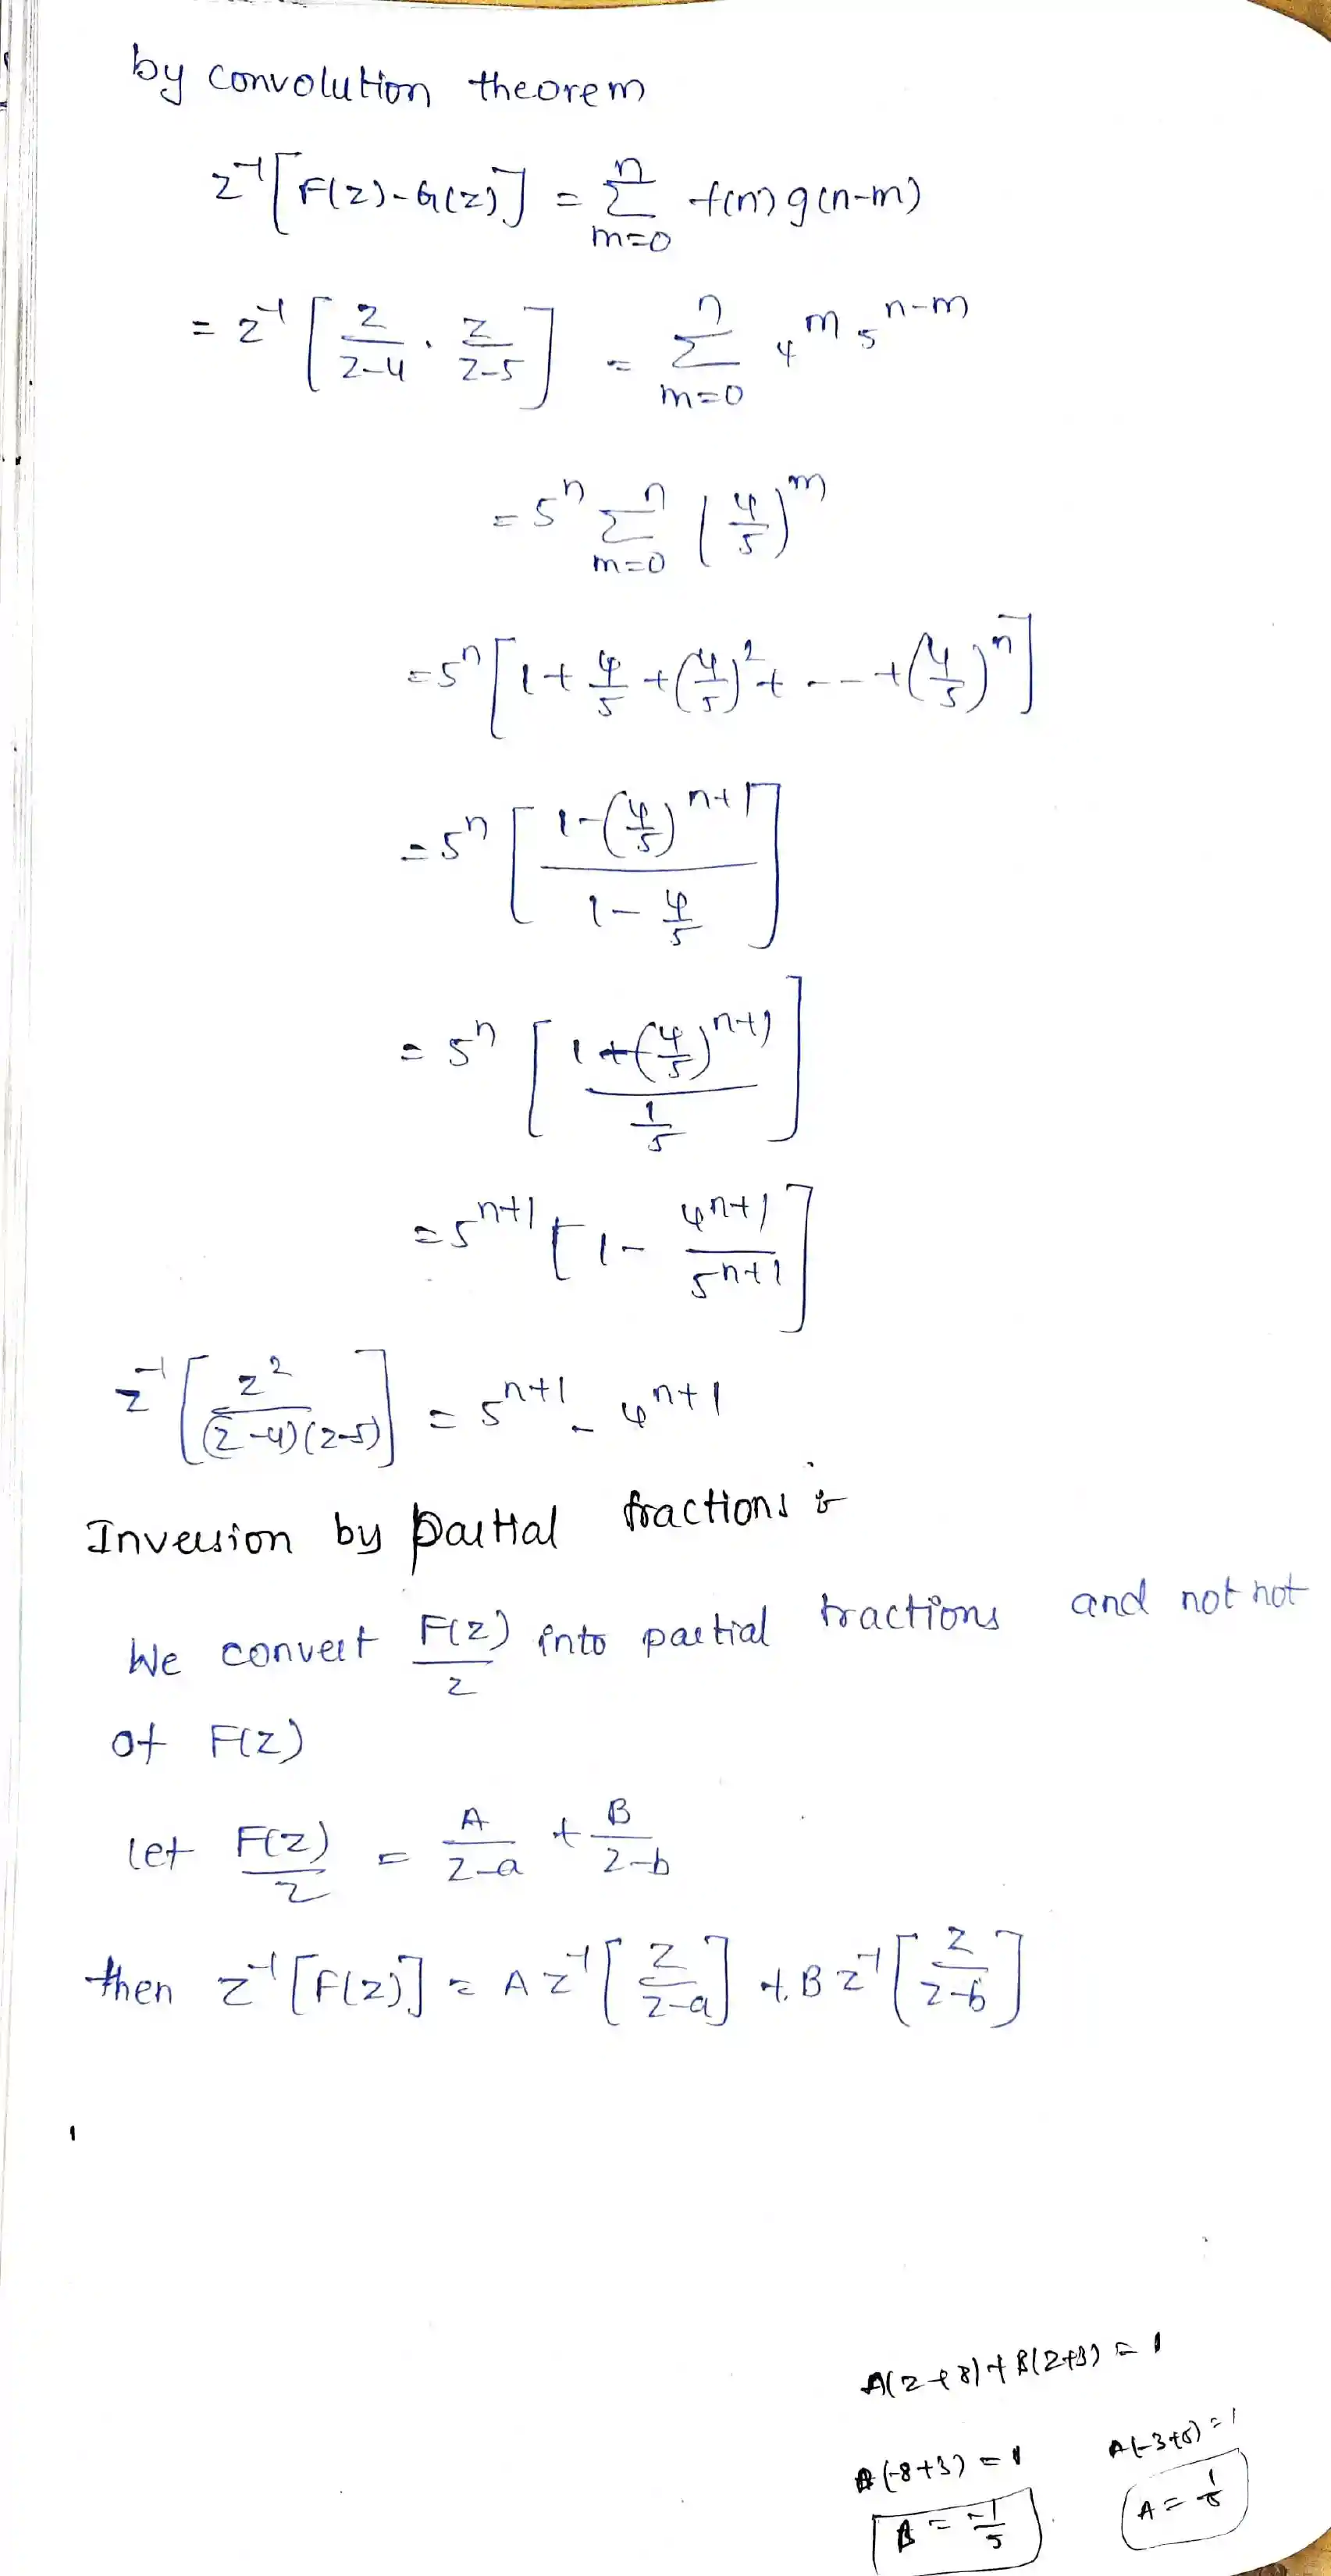 by convolution theorem
z⁻¹[F(z)-G(z)] = Σ_{m=0}^{n} f(m) g(n-m)
= z⁻¹[z/(z-4) · z/(z-5)] = Σ_{m=0}^{n} 4^m 5^{n-m}
= 5^n Σ_{m=0}^{n} (4/5)^m
= 5^n [1 + 4/5 + (4/5)^2 + --- + (4/5)^n]
= 5^n [(1-(4/5)^{n+1})/(1-4/5)]
= 5^n [(1+(4/5)^{n+1})/(1/5)]
= 5^{n+1} [1 - 4^{n+1}/5^{n+1}]
z⁻¹[z²/((z-4)(z-5))] = 5^{n+1} - 4^{n+1}
Inversion by partial fractions :-
We convert F(z)/z into partial fractions and not not
of F(z)
let F(z)/z = A/(z-a) + B/(z-b)
then z⁻¹[F(z)] = A z⁻¹[z/(z-a)] + B z⁻¹[z/(z-b)]
A(z+8)+B(z+3) = 1
B(-8+3) = 1 A(-3+8) = 1
B = -1/5 A = 1/5